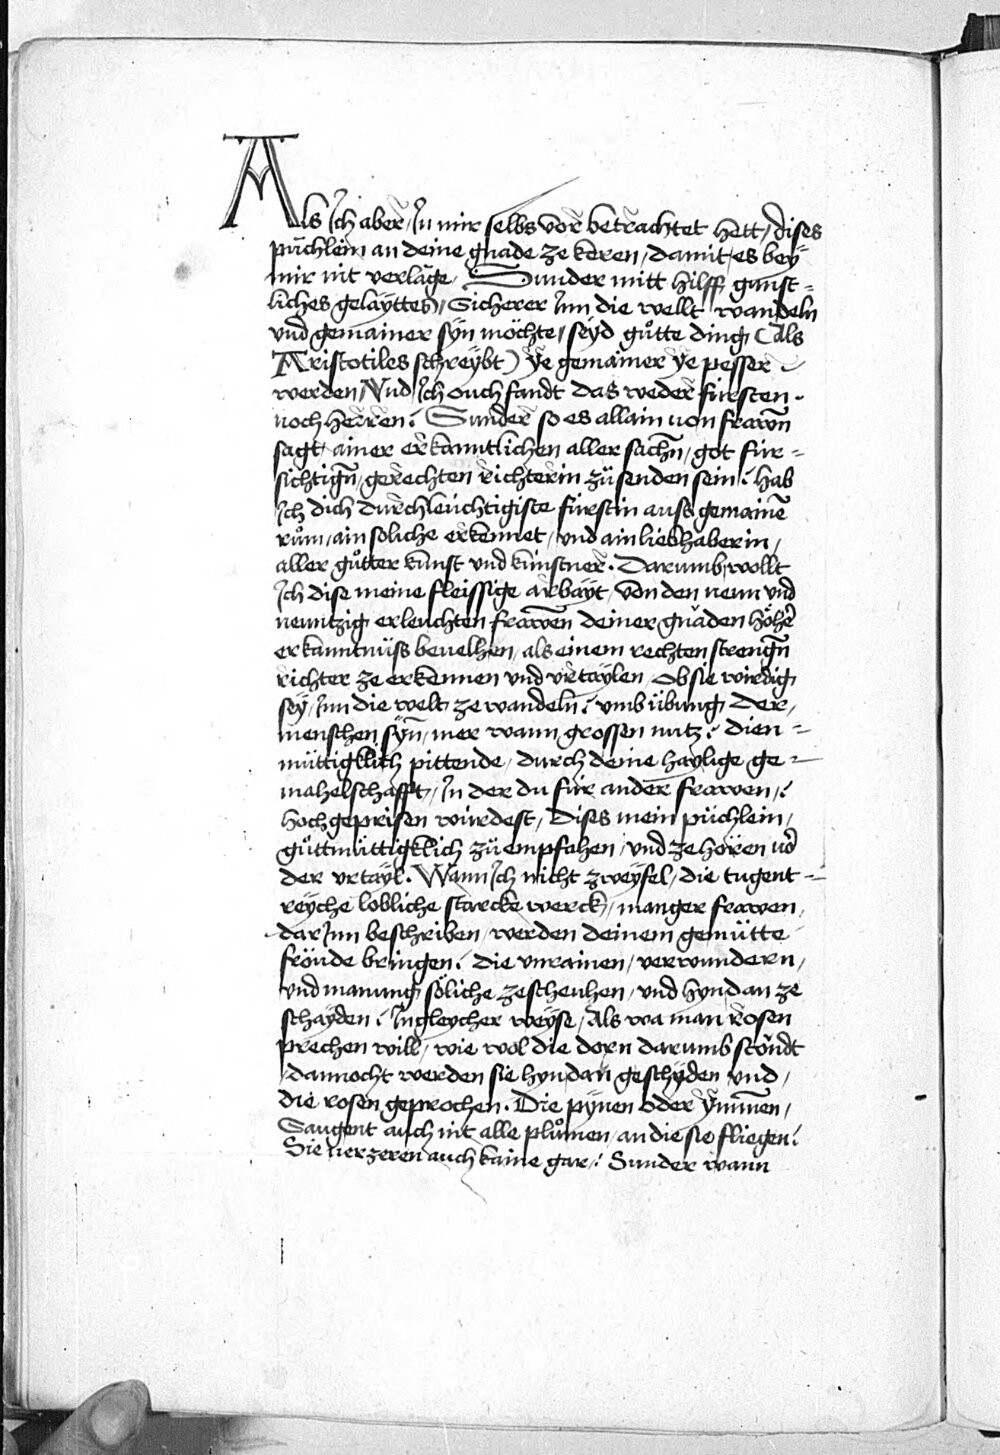 Als Ich aber / In mir selbs vor betrachtet hett / dises
púchlein an deine gnade ze keren / damit es bey
mir nit verläge / Sunder mitt hilff gunst=
liches geläyttes / Sicherer Inn die wellt wandeln
vnd gemainer sÿn möchte / seÿd gůtte ding (Als
Aristotiles schreÿbt) ÿe gemainer ÿe pesser
werden / Vnd Ich ouch fandt das weder fürsten
noch herren / Sunder so es allain von frawn̄
sagt / ainer erkanntlichen aller sachn̄ / got für=
sichtign̄ / gerechten richterin zü senden sein / hab
Ich dich durchleüchtigiste fürstin auss gemainē
růmm / ain soliche erkennet / vnd ain liebhaberin /
aller gůtter kunst vnd künstner. Darumb wollt
Ich dise meine fleissige arbäyt / von den neun vnd
neuntzig erleuchten frawen̄ deiner gnäden höhē
erkanntnüss beuelhen / als einem rechten strengn̄
richter ze erkennen vnd vrtaylen / ob sie wirdig
seÿ / Inn die welt ze wandeln / vmb übung der /
menschen sÿn̄ / mer wann grossen nutz / dien=
müttigklich pittende / durch deine haylige ge=
mahelschafft / In der du für ander frawen /
hoch geprisen würdest / Dises mein püchlein /
gůttmüttigklich zü empfahen / vnd ze hören vn̄
der vrtäyl. Wann Ich nicht zweÿfel / die tugent=
reÿche lobliche starcke werck / manger frawen /
dar Inn beschriben / werden deinem gemütte
fröude bringen / die vnrainen / verwundern /
vnd manung söliche ze scheuhen / vnd hyndan ze
schäyden / In gleycher weÿse / Als wa man rosen
prechen will / wie wol die dorn darumb stöndt
/ dannocht werden sie hyndan geschÿden vnd /
die rosen geprochen. Die pÿnen oder ÿmmen /
Saugent auch nit alle plůmen / an die sie fliegen /
Sie verzeren auch kaine gar / Sunder wann